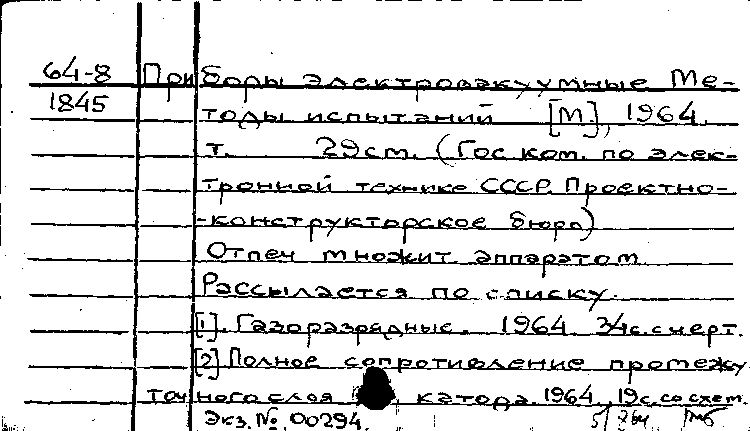 64-8 Приборы электровакуумные Ме-
1845 тоды испытаний [М.], 1964.
т. 29см. (Гос ком. по элек-
тронной технике СССР. Проектно-
-конструкторское бюро)
Отпеч множит аппаратом
Рассылается по списку.
[1]. Газоразрядные. 1964 34с. с черт.
[2] Полное сопротивление промежу
точного слоя катода. 1964, 19с. со схем.
Экз. № 00294.